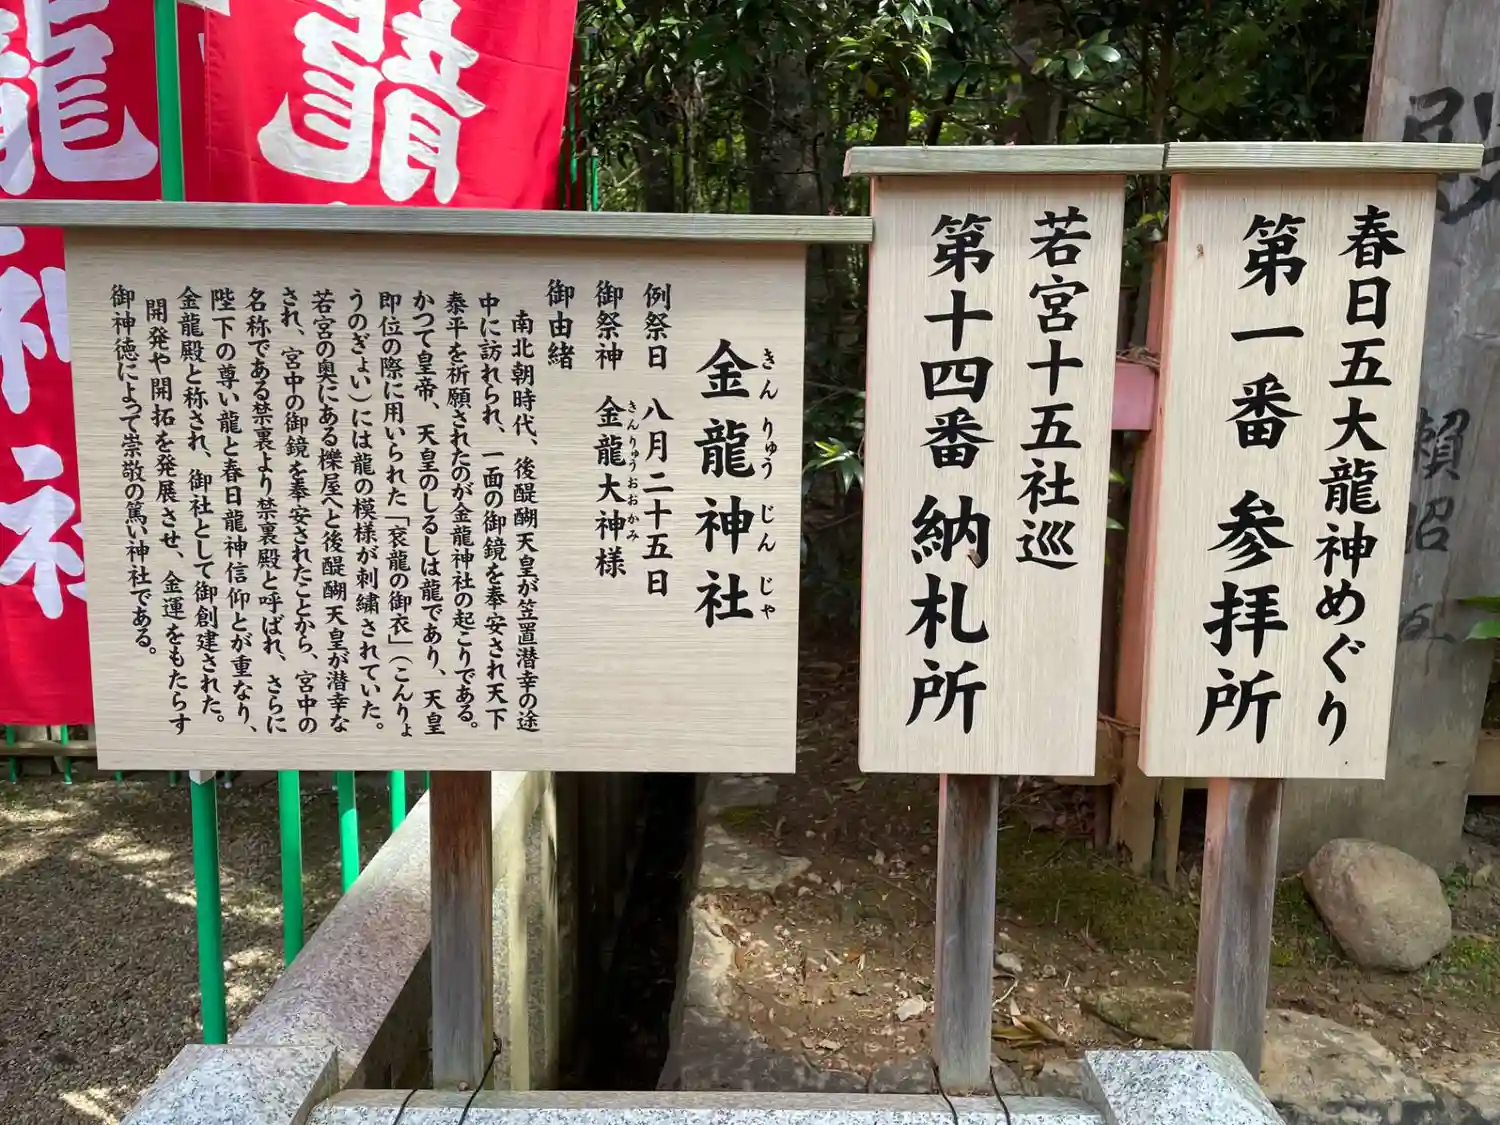 春日五大龍神めぐり
第一番 参拝所
若宮十五社巡
第十四番 納札所
金龍神社
きんりゅうじんじゃ
例祭日 八月二十五日
御祭神 金龍大神様
きんりゅうおおかみ
御由緒
南北朝時代、後醍醐天皇が笠置潜幸の途
中に訪れられ、一面の御鏡を奉安され天下
泰平を祈願されたのが金龍神社の起こりである。
かつて皇帝、天皇のしるしは龍であり、天皇
即位の際に用いられた「袞龍の御衣」(こんりょ
うのぎょい)には龍の模様が刺繡されていた。
若宮の奥にある櫟屋へと後醍醐天皇が潜幸な
され、宮中の御鏡を奉安されたことから、宮中の
名称である禁裏より禁裏殿と呼ばれ、さらに
陛下の尊い龍と春日龍神信仰とが重なり、
金龍殿と称され、御社として御創建された。
開発や開拓を発展させ、金運をもたらす
御神徳によって崇敬の篤い神社である。
龍
龍
神社